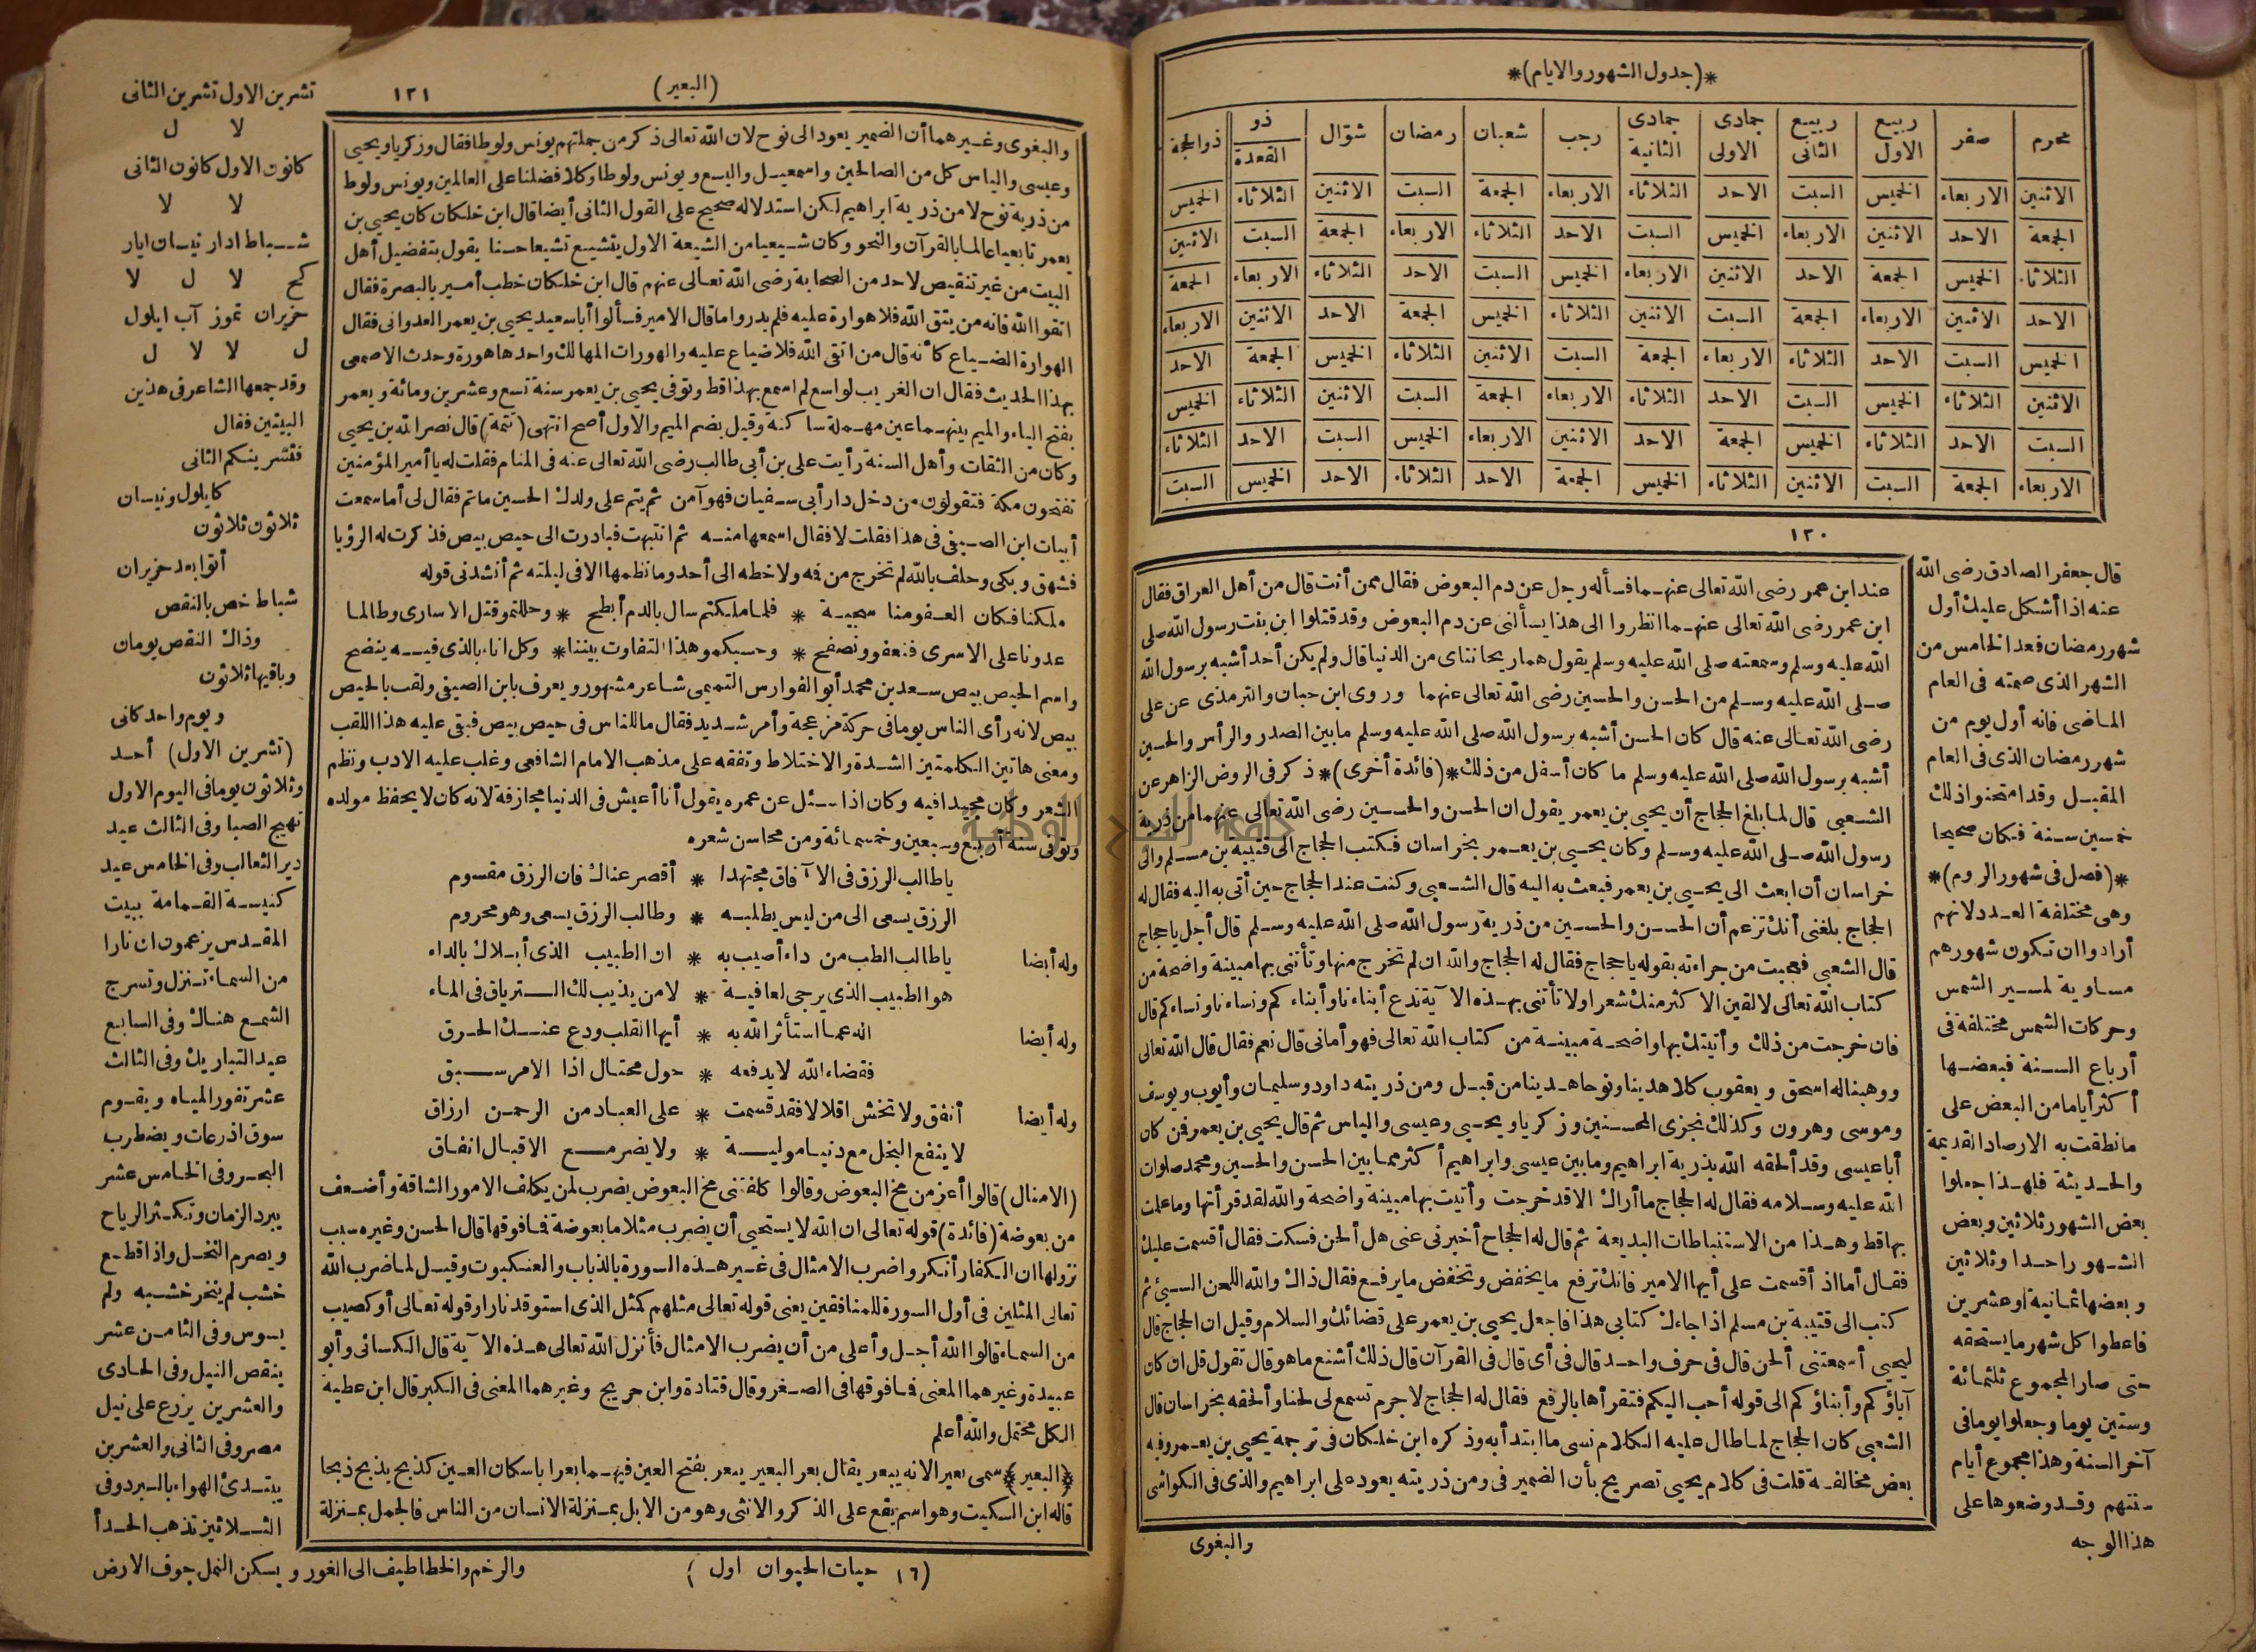 *(جدول الشهور والايام)*
محرم صفر ربيع الاول ربيع الثانى جمادى الاولى جمادى الثانية رجب شعبان رمضان شوّال ذو القعدة ذوالحجة
الاثنين الاربعاء الخميس السبت الاحد الثلاثاء الاربعاء الجمعة السبت الاثنين الثلاثاء الخميس
الجمعة الاحد الاثنين الاربعاء الخميس السبت الاحد الثلاثاء الاربعاء الجمعة السبت الاثنين
الثلاثاء الخميس الجمعة الاحد الاثنين الاربعاء الخميس السبت الاحد الثلاثاء الاربعاء الجمعة
الاحد الاثنين الاربعاء الجمعة السبت الاثنين الثلاثاء الخميس الجمعة الاحد الاثنين الاربعاء
الخميس السبت الاحد الثلاثاء الاربعاء الجمعة السبت الاثنين الثلاثاء الخميس الجمعة الاحد
الاثنين الثلاثاء الخميس السبت الاحد الثلاثاء الاربعاء الجمعة السبت الاثنين الثلاثاء الخميس
السبت الاحد الثلاثاء الخميس الجمعة الاحد الاثنين الاربعاء الخميس السبت الاحد الثلاثاء
الاربعاء الجمعة السبت الاثنين الثلاثاء الخميس الجمعة الاحد الثلاثاء الاحد الخميس السبت
١٢٠
قال جعفر الصادق رضى الله
عنه اذا أشكل عليك أول
شهر رمضان فعد الخامس من
الشهر الذى صمته فى العام
الماضى فانه أول يوم من
شهر رمضان الذى فى العام
المقبل وقد امتحنوا ذلك
خمسين سنة فكان صحيحا
*(فصل فى شهور الروم)*
وهى مختلفة العدد لانهم
أرادوا ان تكون شهورهم
مساوية لمسير الشمس
وحركات الشمس مختلفة فى
أرباع السنة فبعضها
أكثر أياما من البعض على
ما نطقت به الارصاد القديمة
والحديثة فلهذا جعلوا
بعض الشهور ثلاثين وبعض
الشهور احدا وثلاثين
وبعضها ثمانية وعشرين
فاعطوا كل شهر ما يستحقه
حتى صار المجموع ثلثمائة
وستين يوما وجعلوا يوما فى
آخر السنة وهذا مجموع أيام
سنتهم وقد وضعوها على
هذا الوجه
عند ابن عمر رضى الله تعالى عنهما فسأله رجل عن دم البعوض فقال ممن أنت قال من أهل العراق فقال
ابن عمر رضى الله تعالى عنهما انظروا الى هذا يسألنى عن دم البعوض وقد قتلوا ابن بنت رسول الله صلى
الله عليه وسلم وسمعته صلى الله عليه وسلم يقول هما ريحانتاى من الدنيا قال ولم يكن أحد أشبه برسول الله
صلى الله عليه وسلم من الحسن والحسين رضى الله تعالى عنهما وروى ابن حبان والترمذى عن على
رضى الله تعالى عنه قال كان الحسن أشبه برسول الله صلى الله عليه وسلم ما بين الصدر والرأس والحسين
أشبه برسول الله صلى الله عليه وسلم ما كان أسفل من ذلك *(فائدة أخرى)* ذكر فى الروض الزاهر عن
الشعبى قال لما بلغ الحجاج أن يحيى بن يعمر يقول ان الحسن والحسين رضى الله تعالى عنهما من ذرية
رسول الله صلى الله عليه وسلم وكان يحيى بن يعمر بخراسان فكتب الحجاج الى قتيبة بن مسلم والى
خراسان أن ابعث الى يحيى بن يعمر فبعث به اليه قال الشعبى وكنت عند الحجاج حين أتى به اليه فقال له
الحجاج بلغنى أنك تزعم أن الحسن والحسين من ذرية رسول الله صلى الله عليه وسلم قال أجل يا حجاج
قال الشعبى فعجبت من جراءته بقوله يا حجاج فقال له الحجاج والله ان لم تخرج منها وتأتنى بها مبينة واضحة من
كتاب الله تعالى لالقين الاكثر منك شعرا ولا تأتنى بهذه الآية ندع أبناءنا وأبناءكم ونساءنا ونساءكم قال
فان خرجت من ذلك وأتيتك بها واضحة مبينة من كتاب الله تعالى فهو أمانى قال نعم فقال قال الله تعالى
ووهبنا له اسحق ويعقوب كلا هدينا ونوحا هدينا من قبل ومن ذريته داود وسليمان وأيوب ويوسف
وموسى وهرون وكذلك نجزى المحسنين وزكريا ويحيى وعيسى والياس ثم قال يحيى بن يعمر فمن كان
أبا عيسى وقد ألحقه الله بذرية ابراهيم وما بين عيسى وابراهيم أكثر مما بين الحسن والحسين ومحمد صلوات
الله عليه وسلامه فقال له الحجاج ما أراك الا قد خرجت وأتيت بها مبينة واضحة والله لقد قرأتها وما علمت
بها قط وهذا من الاستنباطات البديعة ثم قال له الحجاج أخبرنى عنى هل ألحن فسكت فقال أقسمت عليك
فقال أما اذ أقسمت على أيها الامير فانك ترفع ما يخفض وتخفض ما يرفع فقال ذاك والله اللحن السيئ ثم
كتب الى قتيبة بن مسلم اذا جاءك كتابى هذا فاجعل يحيى بن يعمر على قضائك والسلام وقيل ان الحجاج قال
ليحيى أسمعتنى ألحن قال فى حرف واحد قال فى أى قال فى القرآن قال ذلك أشنع ما هو قال تقول قل ان كان
آباؤكم وأبناؤكم الى قوله أحب اليكم فتقرأها بالرفع فقال له الحجاج لا جرم تسمع لى لحنا وألحقه بخراسان قال
الشعبى كان الحجاج لما طال عليه الكلام نسى ما ابتدأ به وذكره ابن خلكان فى ترجمة يحيى بن يعمر وفيه
بعض مخالفة قلت فى كلام يحيى تصريح بأن الضمير فى ومن ذريته يعود على ابراهيم والذى فى الكواشى
والبغوى
(البعير)
١٢١
والبغوى وغيرهما أن الضمير يعود الى نوح لان الله تعالى ذكر من جملتهم يونس ولوطا فقال وزكريا ويحيى
وعيسى والياس كل من الصالحين واسمعيل واليسع ويونس ولوطا وكلا فضلنا على العالمين ويونس ولوط
من ذرية نوح لا من ذرية ابراهيم لكن استدلاله صحيح على القول الثانى أيضا قال ابن خلكان كان يحيى بن
يعمر تابعيا عالما بالقرآن والنحو وكان شيعيا من الشيعة الاول يتشيع تشيعا حسنا يقول بتفضيل أهل
البيت من غير تنقيص لاحد من الصحابة رضى الله تعالى عنهم قال ابن خلكان خطب أمير بالبصرة فقال
اتقوا الله فانه من يتق الله فلا هوارة عليه فلم يدروا ما قال الامير فسألوا أبا سعيد يحيى بن يعمر العدوانى فقال
الهوارة الضياع كأنه قال من اتقى الله فلا ضياع عليه والهورات المهالك واحدها هورة وحدث الاصمعى
بهذا الحديث فقال ان الغريب لواسع لم اسمع بهذا قط وتوفى يحيى بن يعمر سنة تسع وعشرين ومائة ويعمر
بفتح الياء والميم بينهما عين مهملة ساكنة وقيل بضم الميم والاول أصح انتهى (تتمة) قال نصر الله بن يحيى
وكان من الثقات وأهل السنة رأيت على بن أبى طالب رضى الله تعالى عنه فى المنام فقلت له يا أمير المؤمنين
تفتحون مكة فتقولون من دخل دار أبى سفيان فهو آمن ثم يتم على ولدك الحسين ما تم فقال لى أما سمعت
أبيات ابن الصيفى فى هذا فقلت لا فقال اسمعها منه ثم انتبهت فبادرت الى حيص بيص فذكرت له الرؤيا
فشهق وبكى وحلف بالله لم تخرج من فيه ولا خطه الى أحد وما نظمها الا فى ليلته ثم أنشدنى قوله
ملكنا فكان العفو منا سجية * فلما ملكتم سال بالدم أبطح * وحللتمو قتل الاسارى وطالما
عدونا على الاسرى فنعفو ونصفح * وحسبكمو هذا التفاوت بيننا * وكل اناء بالذى فيه ينضح
واسم الحيص بيص سعد بن محمد أبو الفوارس التميمى شاعر مشهور ويعرف بابن الصيفى ولقب بالحيص
بيص لانه رأى الناس يوما فى حركة مزعجة وأمر شديد فقال ما للناس فى حيص بيص فبقى عليه هذا اللقب
ومعنى هاتين الكلمتين الشدة والاختلاط وتفقه على مذهب الامام الشافعى وغلب عليه الادب ونظم
الشعر وكان مجيدا فيه وكان اذا سئل عن عمره يقول أنا أعيش فى الدنيا مجازفة لانه كان لا يحفظ مولده
وتوفى سنة أربع وسبعين وخمسمائة ومن محاسن شعره
يا طالب الرزق فى الآفاق مجتهدا * أقصر عناك فان الرزق مقسوم
الرزق يسعى الى من ليس يطلبه * وطالب الرزق يسعى وهو محروم
وله أيضا يا طالب الطب من داء أصيب به * ان الطبيب الذى أبلاك بالداء
هو الطبيب الذى يرجى لعافية * لا من يذيب لك الترياق فى الماء
وله أيضا اله عما استأثر الله به * أيها القلب ودع عنك الحرق
فقضاء الله لا يدفعه * حول محتال اذا الامر سبق
وله أيضا أنفق ولا تخش اقلالا فقد قسمت * على العباد من الرحمن ارزاق
لا ينفع البخل مع دنيا مولية * ولا يضر مع الاقبال انفاق
(الامثال) قالوا أعز من مخ البعوض وقالوا كلفتنى مخ البعوض يضرب لمن يكلف الامور الشاقة وأضعف
من بعوضة (فائدة) قوله تعالى ان الله لا يستحيى أن يضرب مثلا ما بعوضة فما فوقها قال الحسن وغيره سبب
نزولها ان الكفار أنكروا ضرب الامثال فى غير هذه السورة بالذباب والعنكبوت وقيل لما ضرب الله
تعالى المثلين فى أول السورة للمنافقين يعنى قوله تعالى مثلهم كمثل الذى استوقد نارا وقوله تعالى أو كصيب
من السماء قالوا الله أجل وأعلى من أن يضرب الامثال فأنزل الله تعالى هذه الآية قال الكسائى وأبو
عبيدة وغيرهما المعنى فما فوقها فى الصغر وقال قتادة وابن جريج وغيرهما المعنى فى الكبر قال ابن عطية
الكل محتمل والله أعلم
(البعير) سمى بعيرا لانه يبعر يقال بعر البعير يبعر بفتح العين فيهما بعرا باسكان العين كذبح يذبح ذبحا
قاله ابن السكيت وهو اسم يقع على الذكر والانثى وهو من الابل بمنزلة الانسان من الناس فالجمل بمنزلة
(١٦ حيات الحيوان اول)
تشرين الاول تشرين الثانى
لا ل
كانون الاول كانون الثانى
لا لا
شباط ادار نيسان ايار
كح لا ل لا
حزيران تموز آب ايلول
ل لا لا ل
وقد جمعها الشاعر فى هذين
البيتين فقال
فتشرينكم الثانى
كايلول ونيسان
ثلاثون ثلاثون
أتوا بعد حزيران
شباط خص بالنقص
وذاك النقص يومان
وباقيها ثلاثون
ويوم واحد كانى
(تشرين الاول) أحد
وثلاثون يوما فى اليوم الاول
تهيج الصبا وفى الثالث عيد
دير الثعالب وفى الخامس عيد
كنيسة القمامة ببيت
المقدس يزعمون ان نارا
من السماء تنزل وتسرج
الشمع هناك وفى السابع
عيد التباريك وفى الثالث
عشر تفور المياه ويقوم
سوق اذرعات ويضطرب
البحر وفى الخامس عشر
يبرد الزمان وتكثر الرياح
ويصرم النخل واذا قطع
خشب لم ينخر خشبه ولم
يسوس وفى الثامن عشر
ينقص النيل وفى الحادى
والعشرين يزرع على نيل
مصر وفى الثانى والعشرين
يبتدئ الهواء بالبرد وفى
الثلاثين تذهب الحدأ
والرخم والخطاطيف الى الغور ويسكن النمل جوف الارض
جامعة النجاح الوطنية